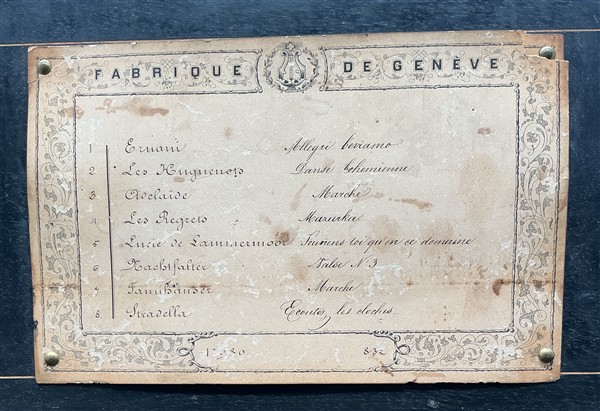 FABRIQUE DE GENÈVE
1 Ernani Allegri beviamo
2 Les Huguenots Danse bohemienne
3 Adelaïde Marche
4 Les Regrets Mazurka
5 Lucie de Lammermoor qu'en ce domaine
6 Nachtfalter Valse N. 3
7 Tannhäuser Marche
8. Stradella Ecoutez les cloches
832